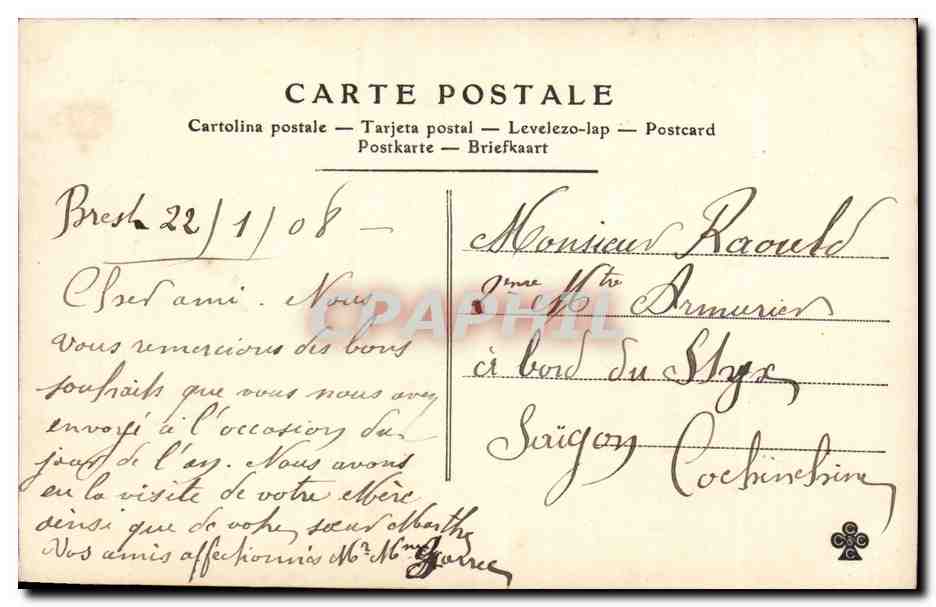 CARTE POSTALE
Cartolina postale — Tarjeta postal — Levelezo-lap — Postcard
Postkarte — Briefkaart
Brest 22/1/08 —
Cher ami. Nous
vous remercions des bons
souhaits que vous nous avez
envoyé à l'occasion du
jour de l'an. Nous avons
eu la visite de votre Mère
ainsi que de votre sœur Marthe
Vos amis affectionnés Mr. Mme
Monsieur Raould
2eme Mtre Armurier
à bord du Styx
Saïgon
Cochinchine
CPAPHIL
C C & C C